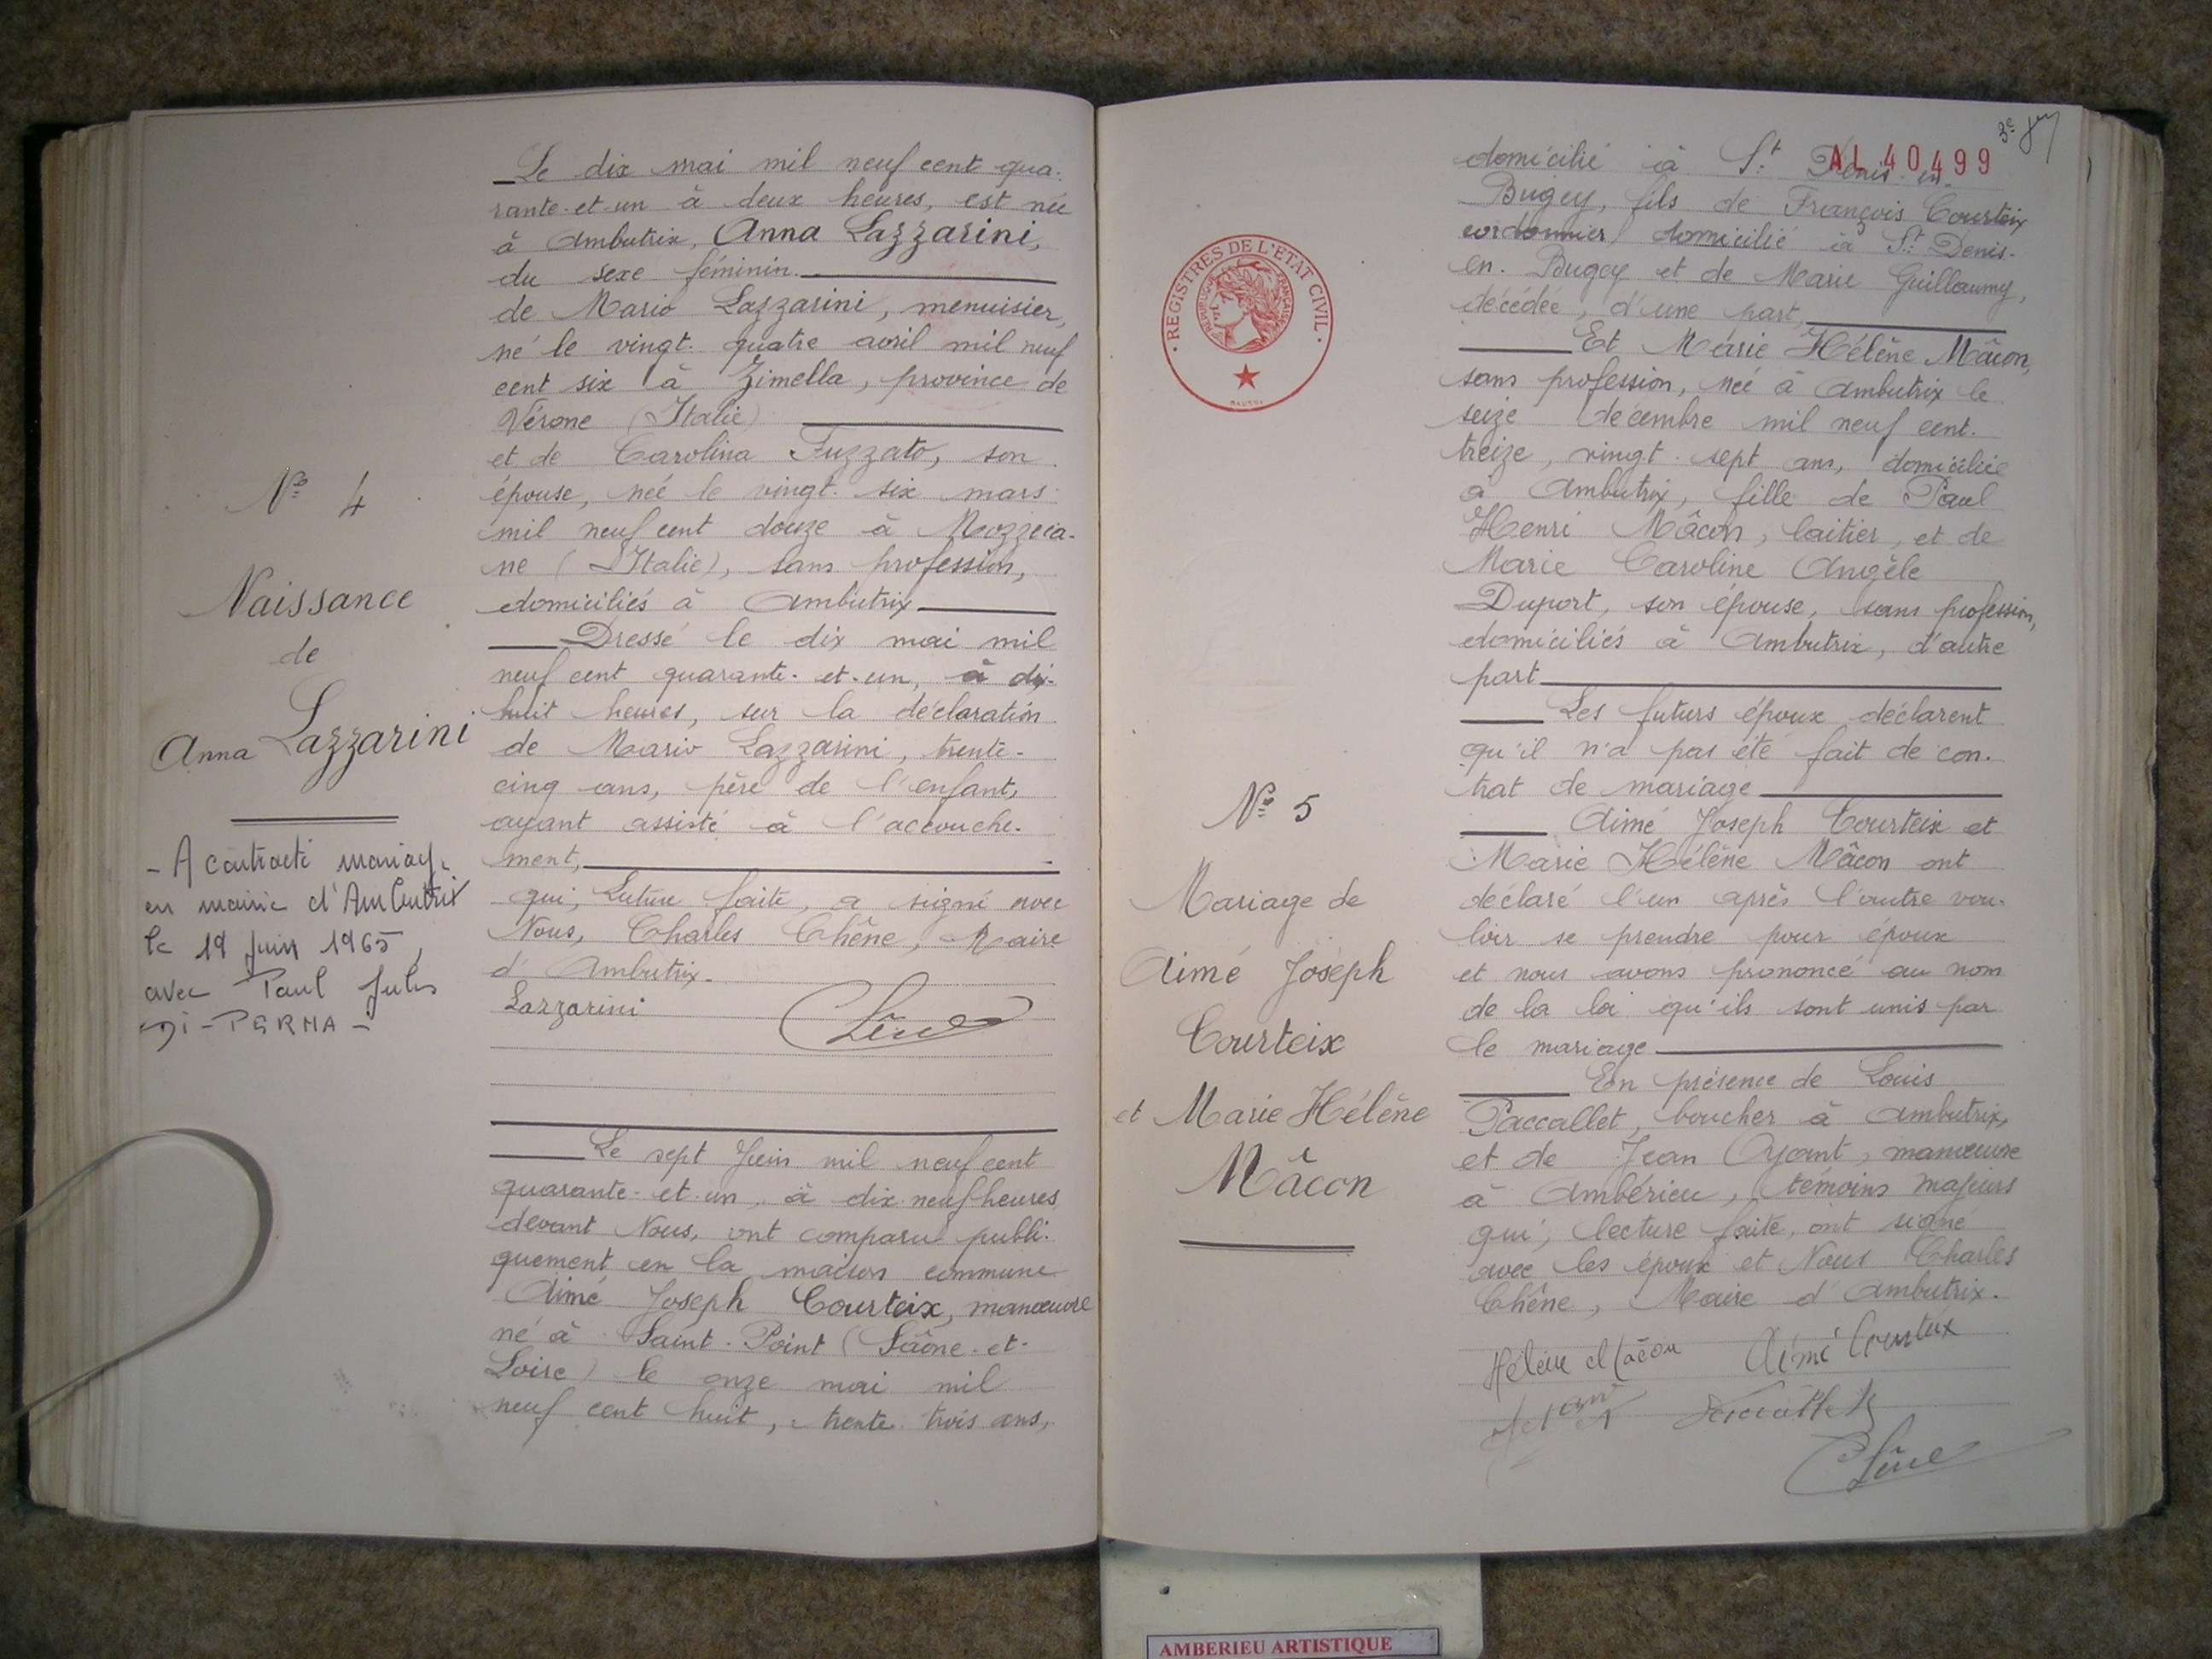 Le dix mai mil neuf cent qua-
rante-et-un à deux heures, est née
à Ambutrix, Anna Lazzarini,
du sexe féminin.
de Mario Lazzarini, menuisier,
né le vingt-quatre avril mil neuf
cent six à Zimella, province de
Vérone (Italie)
et de Carolina Fuzzato, son
épouse, née le vingt-six mars
mil neuf cent douze à Mozzeca-
ne (Italie), sans profession,
domiciliés à Ambutrix
Dressé le dix mai mil
neuf cent quarante-et-un, à dix-
huit heures, sur la déclaration
de Mario Lazzarini, trente-
cinq ans, père de l'enfant,
ayant assisté à l'accouche-
ment,
qui, lecture faite, a signé avec
Nous, Charles Chêne, Maire
d'Ambutrix.
Lazzarini Chêne
N° 4
Naissance
de
Anna Lazzarini
- A contracté mariage
en mairie d'Ambutrix
le 19 juin 1965,
avec Paul Jules
DI-PERMA-
Le sept Juin mil neuf cent
quarante-et-un, à dix-neuf heures,
devant Nous, ont comparu publi-
quement en la maison commune
Aimé Joseph Courteix, manœuvre
né à Saint-Point (Saône-et-
Loire) le onze mai mil
neuf cent huit, trente-trois ans,
AL 40499
domicilié à St Denis-en-
Bugey, fils de François Courteix
cordonnier domicilié à St Denis-
en-Bugey et de Marie Guillaumy,
décédée, d'une part,
Et Marie Hélène Mâcon,
sans profession, née à Ambutrix le
seize décembre mil neuf cent-
treize, vingt-sept ans, domiciliée
à Ambutrix, fille de Paul
Henri Mâcon, laitier, et de
Marie Caroline Angèle
Duport, son épouse, sans profession,
domiciliés à Ambutrix, d'autre
part
Les futurs époux déclarent
qu'il n'a pas été fait de con-
trat de mariage
Aimé Joseph Courteix et
Marie Hélène Mâcon ont
déclaré l'un après l'autre vou-
loir se prendre pour époux
et nous avons prononcé au nom
de la loi qu'ils sont unis par
le mariage
En présence de Louis
Paccallet, boucher à Ambutrix,
et de Jean Ayant, manœuvre
à Ambérieu, témoins majeurs
qui, lecture faite, ont signé
avec les époux et Nous Charles
Chêne, Maire d'Ambutrix.
Hélène Mâcon Aimé Courteix
Chêne
REGISTRES DE L'ETAT CIVIL
REPUBLIQUE FRANÇAISE
N° 5
Mariage de
Aimé Joseph
Courteix
et Marie Hélène
Mâcon
AMBERIEU ARTISTIQUE